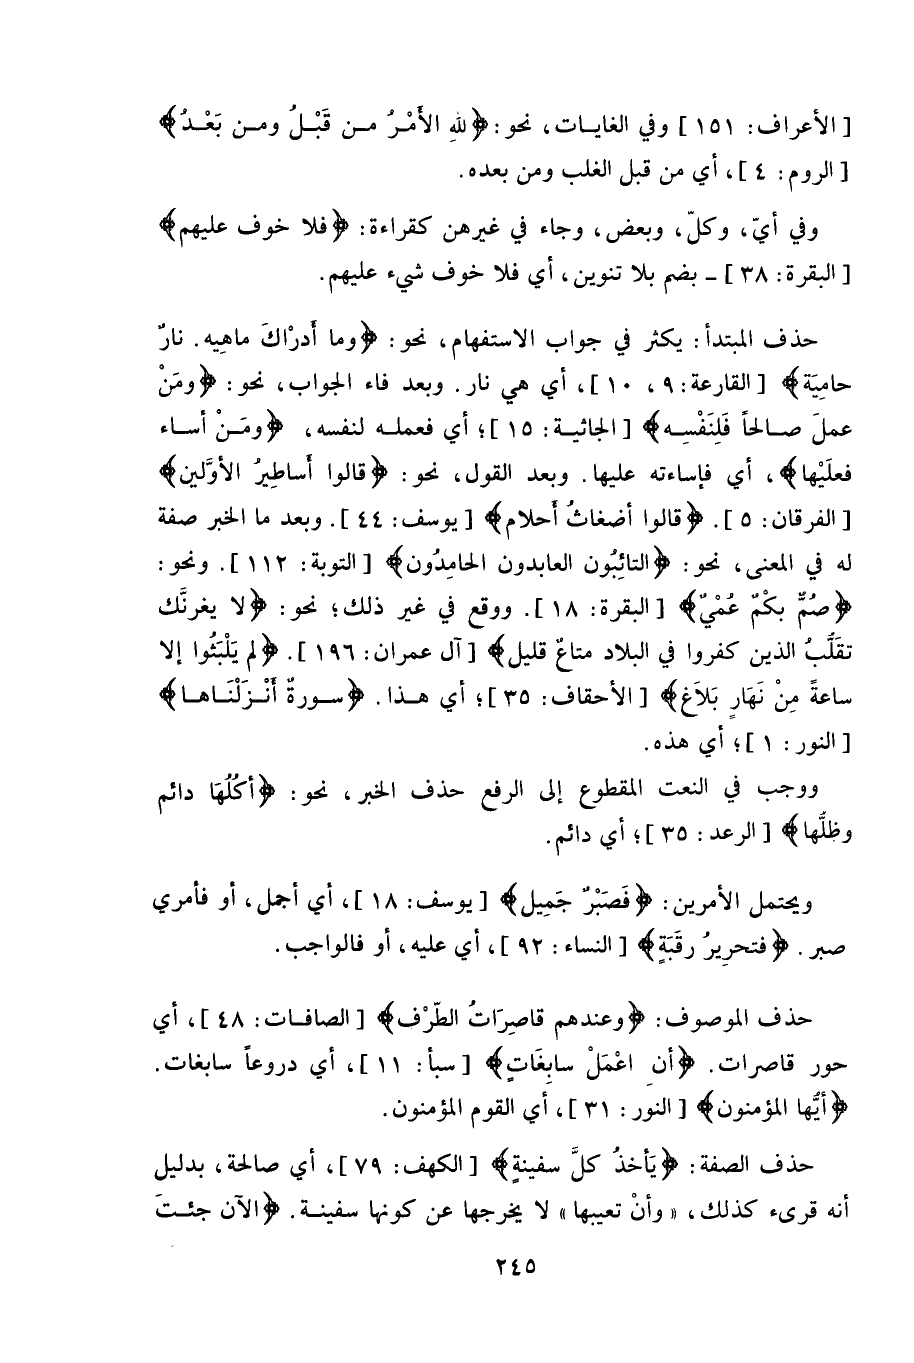 [ الأعراف: ١٥١ ] وفي الغايـات، نحو: ﴿لله الأَمْرُ مـن قَبْـلُ ومـن بَعْـدُ﴾
[ الروم: ٤ ]، أي من قبل الغلب ومن بعده.
وفي أيّ، وكلّ، وبعض، وجاء في غيرهن كقراءة: ﴿فلا خوف عليهم﴾
[ البقرة: ٣٨ ] ـ بضم بلا تنوين، أي فلا خوف شيء عليهم.
حذف المبتدأ: يكثر في جواب الاستفهام، نحو: ﴿وما أَدراْكَ ماهِيه. نارٌ
حامِيَة﴾ [ القارعة: ٩ ، ١٠ ]، أي هي نار. وبعد فاء الجواب، نحو: ﴿ومَنْ
عملَ صـالحاً فَلِنَفْسِـه﴾ [ الجاثيـة: ١٥ ]؛ أي فعملـه لنفسه، ﴿ومَـنْ أسـاء
فعلَيْها﴾، أي فإساءته عليها. وبعد القول، نحو: ﴿قالوا أَساطِيرُ الأوَّلين﴾
[ الفرقان: ٥ ]. ﴿قالوا أضغاثُ أَحلام﴾ [ يوسف: ٤٤ ]. وبعد ما الخبر صفة
له في المعنى، نحو: ﴿التائِبُون العابدون الحامِدُون﴾ [ التوبة: ١١٢ ]. ونحو:
﴿صُمٌّ بكْمٌ عُمْيٌ﴾ [ البقرة: ١٨ ]. ووقع في غير ذلك؛ نحو: ﴿لا يغرنَّك
تقَلُّبُ الذين كفروا في البلاد متاعٌ قليل﴾ [ آل عمران: ١٩٦ ]. ﴿لم يَلْبَثُوا إلا
ساعةً مِنْ نَهَارٍ بَلاَغ﴾ [ الأحقاف: ٣٥ ]؛ أي هـذا. ﴿سـورةٌ أَنْـزَلْنَـاهـا﴾
[ النور: ١ ]؛ أي هذه.
ووجب في النعت المقطوع إلى الرفع حذف الخبر، نحو: ﴿أُكُلُهَا دائم
وظلُّها﴾ [ الرعد: ٣٥ ]؛ أي دائم.
ويحتمل الأمرين: ﴿فَصَبْرٌ جَمِيل﴾ [ يوسف: ١٨ ]، أي أجمل، أو فأمري
صبر. ﴿فتحرِيرُ رقَبَةٍ﴾ [ النساء: ٩٢ ]، أي عليه، أو فالواجب.
حذف الموصوف: ﴿وعندهم قاصِرَاتُ الطّرْف﴾ [ الصافـات: ٤٨ ]، أي
حور قاصرات. ﴿أنِ اعْمَلْ سابِغَاتٍ﴾ [ سبأ: ١١ ]، أي دروعاً سابغات.
﴿أيُّها المؤمنون﴾ [ النور: ٣١ ]، أي القوم المؤمنون.
حذف الصفة: ﴿يَأخذُ كلَّ سفينةٍ﴾ [ الكهف: ٧٩ ]، أي صالحة، بدليل
أنه قرىء كذلك، « وأنْ تعيبها » لا يخرجها عن كونها سفينـة. ﴿الآن جئـتَ
٢٤٥